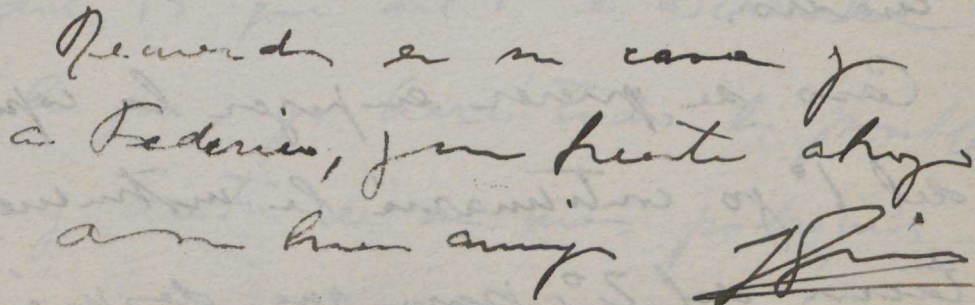 Recuerdos en su casa y
a Federico, y un fuerte abrazo
a su buen amigo